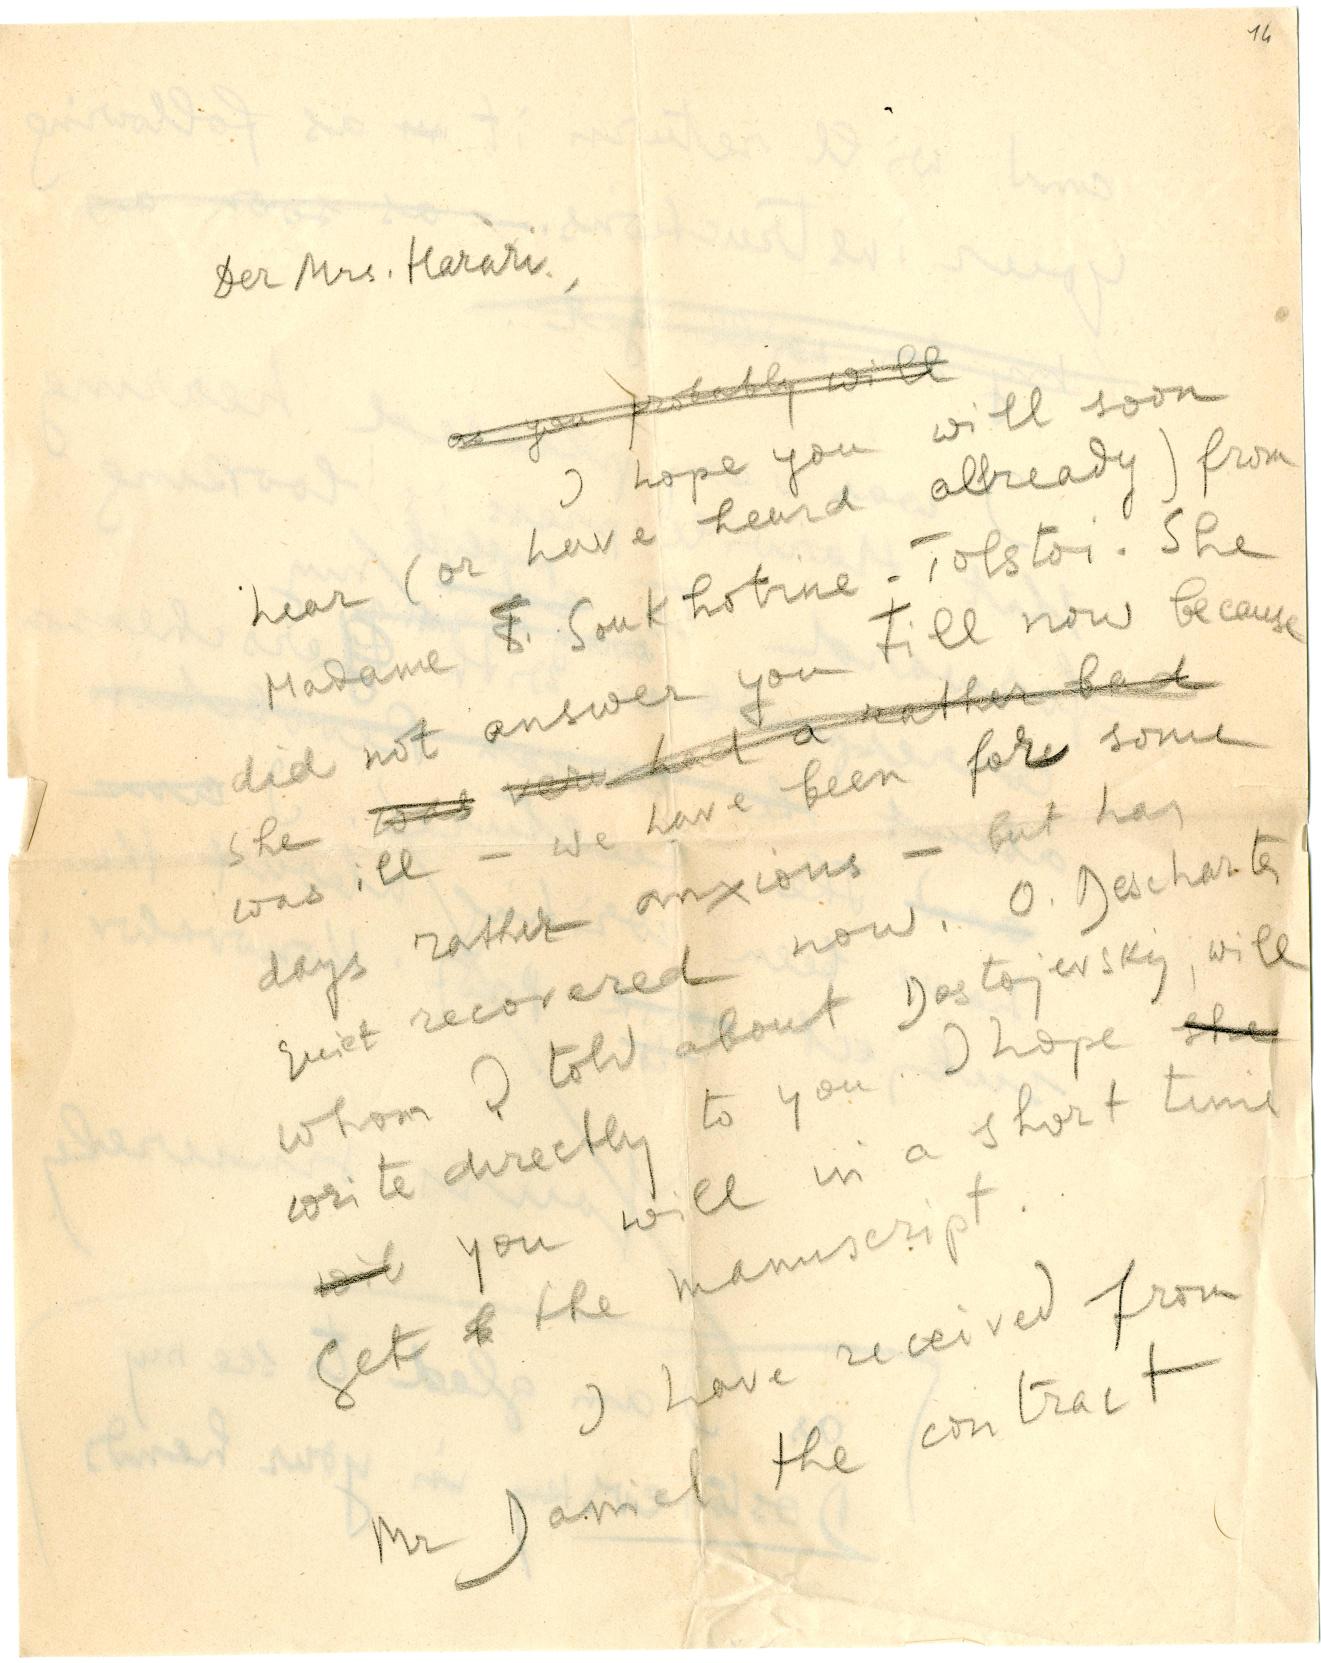 14
Der Mrs. Harari,
as you probably will
I hope you will soon
hear (or have heard allready) from
Madame T. Soukhotine-Tolstoi. She
did not answer you till now because
she was very had a rather bad
was ill – we have been for some
days rather anxious – but has
quiet recovered now. O. Deschartes
whom I told about Dostojevskij, will
write directly to you. I hope she
will you will in a short time
get the manuscript.
I have received from
Mr Daniel the contract